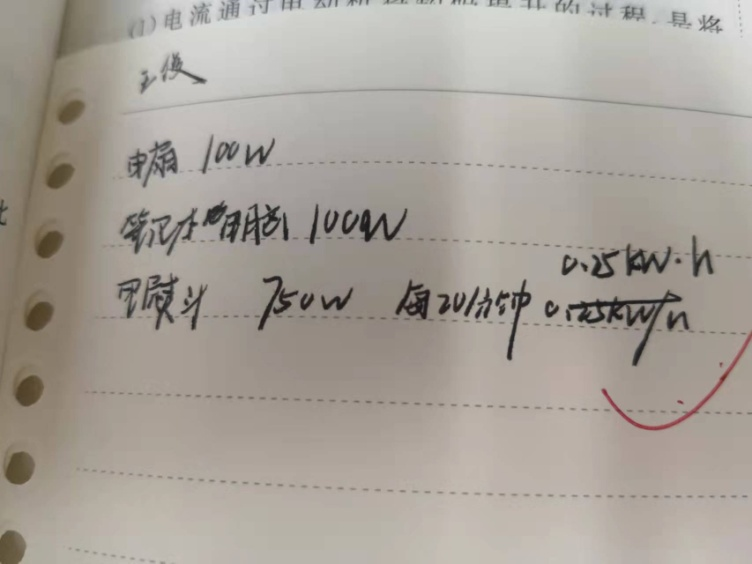 (1)电流通过电动机将物体提升的过程,是将
王俊
电扇 100W
笔记本电脑 100W
0.25kW·h
电熨斗 750W 每20分钟 0.25kW/h